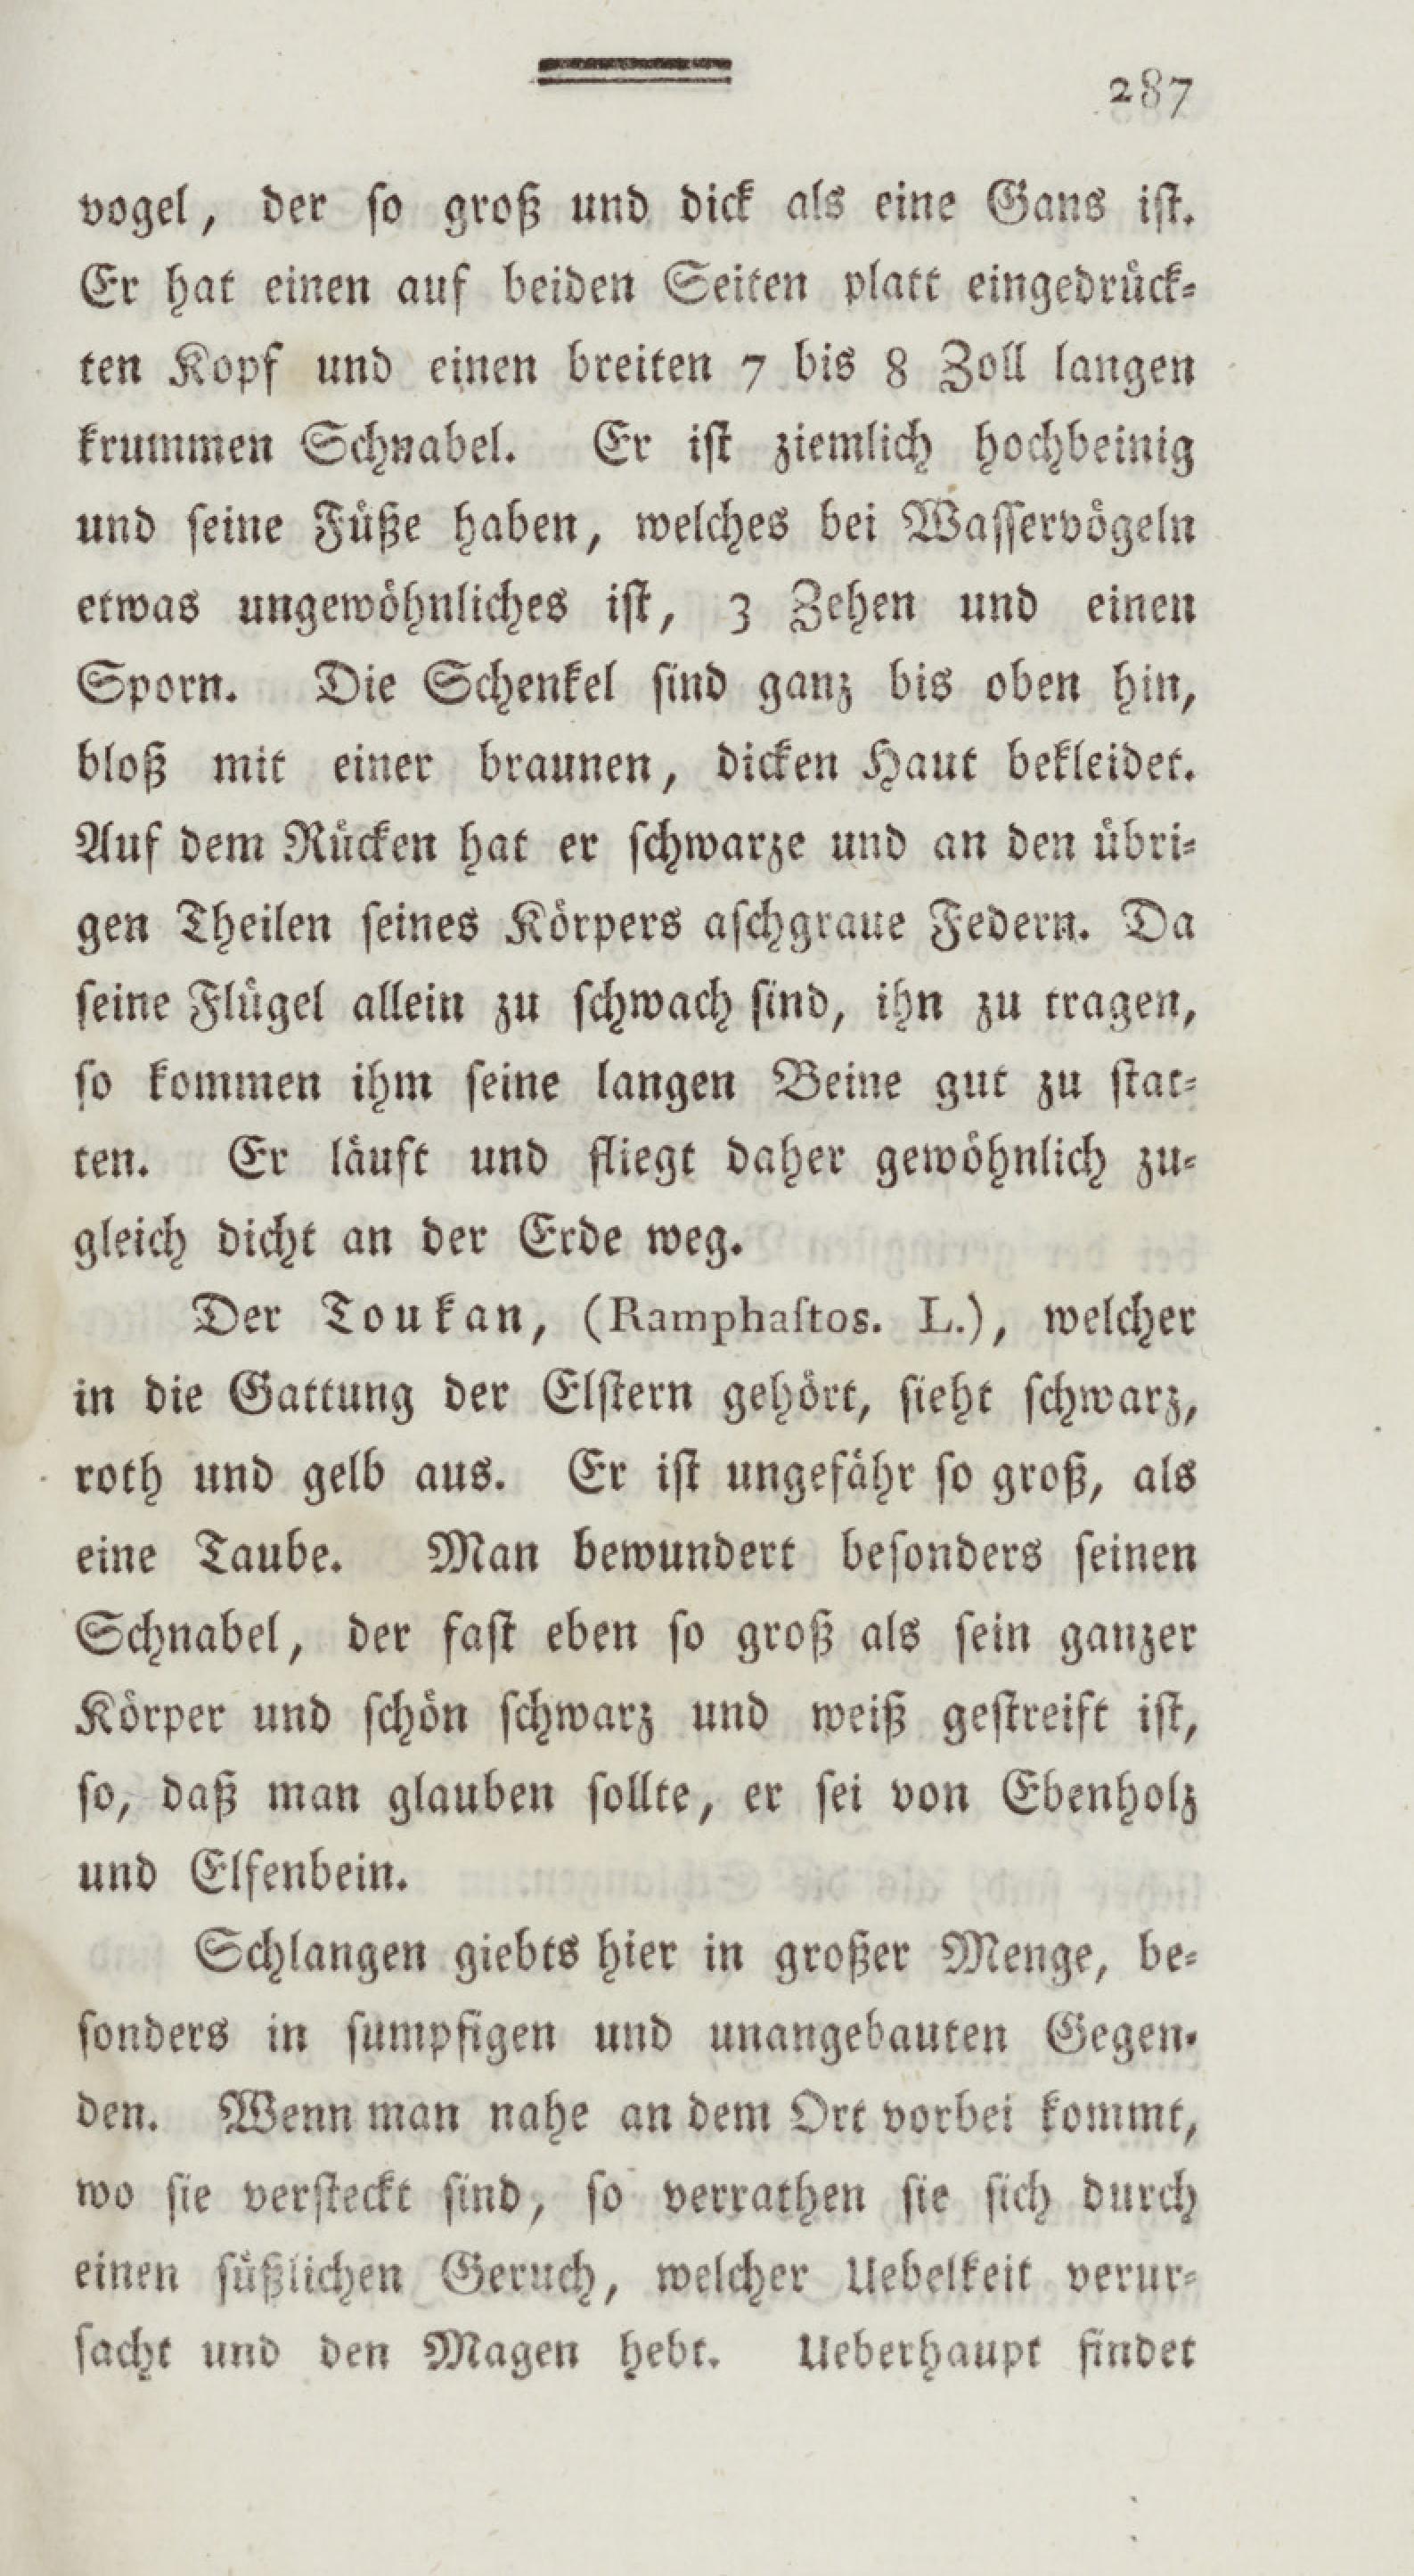 287
vogel, der ſo groß und dick als eine Gans iſt.
Er hat einen auf beiden Seiten platt eingedruͤck⸗
ten Kopf und einen breiten 7 bis 8 Zoll langen
krummen Schnabel. Er iſt ziemlich hochbeinig
und ſeine Fuͤße haben, welches bei Waſſervoͤgeln
etwas ungewoͤhnliches iſt, 3 Zehen und einen
Sporn. Die Schenkel ſind ganz bis oben hin,
bloß mit einer braunen, dicken Haut bekleidet.
Auf dem Ruͤcken hat er ſchwarze und an den uͤbri⸗
gen Theilen ſeines Koͤrpers aſchgraue Federn. Da
ſeine Fluͤgel allein zu ſchwach ſind, ihn zu tragen,
ſo kommen ihm ſeine langen Beine gut zu ſtat⸗
ten. Er laͤuft und fliegt daher gewoͤhnlich zu⸗
gleich dicht an der Erde weg.
Der Toukan, (Ramphaſtos. L.), welcher
in die Gattung der Elſtern gehoͤrt, ſieht ſchwarz,
roth und gelb aus. Er iſt ungefaͤhr ſo groß, als
eine Taube. Man bewundert beſonders ſeinen
Schnabel, der faſt eben ſo groß als ſein ganzer
Koͤrper und ſchoͤn ſchwarz und weiß geſtreift iſt,
ſo, daß man glauben ſollte, er ſei von Ebenholz
und Elfenbein.
Schlangen giebts hier in großer Menge, be⸗
ſonders in ſumpfigen und unangebauten Gegen⸗
den. Wenn man nahe an dem Ort vorbei kommt,
wo ſie verſteckt ſind, ſo verrathen ſie ſich durch
einen ſuͤßlichen Geruch, welcher Uebelkeit verur⸗
ſacht und den Magen hebt. Ueberhaupt findet